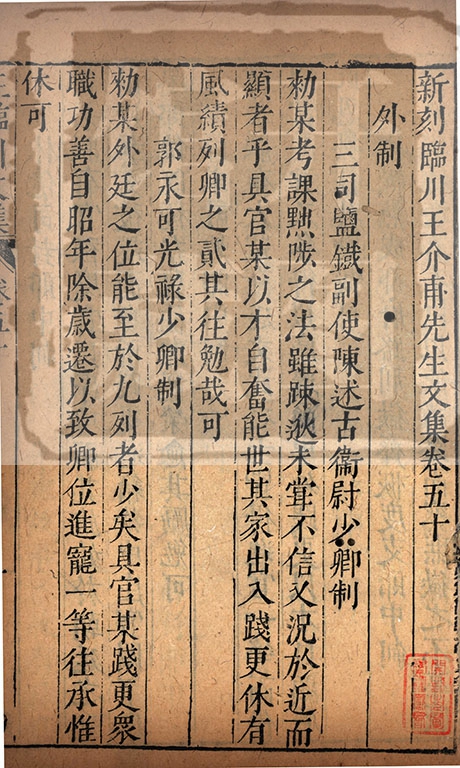 新刻臨川王介甫先生文集卷五十
外制
三司鹽鐵副使陳述古衞尉少卿制
勑某考課黜陟之法雖踈逖未甞不信又況於近而
顯者乎具官某以才自奮能世其家出入踐更休有
風績列卿之貳其往勉哉可
郭永可光祿少卿制
勑某外廷之位能至於九列者少矣具官某踐更衆
職功善自昭年除歲遷以致卿位進寵一等往承惟
休可